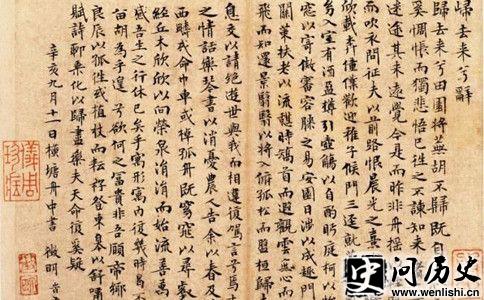 歸去來兮辭
歸去來兮田園將蕪胡不歸既自
奚惆悵而獨悲悟已往之不諫知來
迷途其未遠覺今是而昨非舟搖
而吹衣問征夫以前路恨晨光之熹
欣載奔僮僕歡迎稚子候門三逕就
幼入室有酒盈樽引壺觴以自酌眄庭柯
窓以寄傲審容膝之易安園日涉以成趣門
關策扶老以流憩時矯首而遐觀雲無心而
飛而知還景翳翳以將入撫孤松而盤桓歸
息交以請絕遊世與我而相違復駕言兮焉
之情話樂琴書以消憂農人告余以春及
西疇或命巾車或棹孤舟既窈窕以尋壑
經丘木欣欣以向榮泉涓涓而始流善萬
感吾生之行休已矣乎寓形寓內復幾時曷
留胡為乎遑兮欲何之富貴非吾願帝鄉
良辰以孤往或植杖而耘耔登東皋以舒嘯
賦詩聊乘化以歸盡樂夫天命復奚疑
辛亥九月十一日橫塘舟中書 徵明
史问历史
www.wenlishi.cn